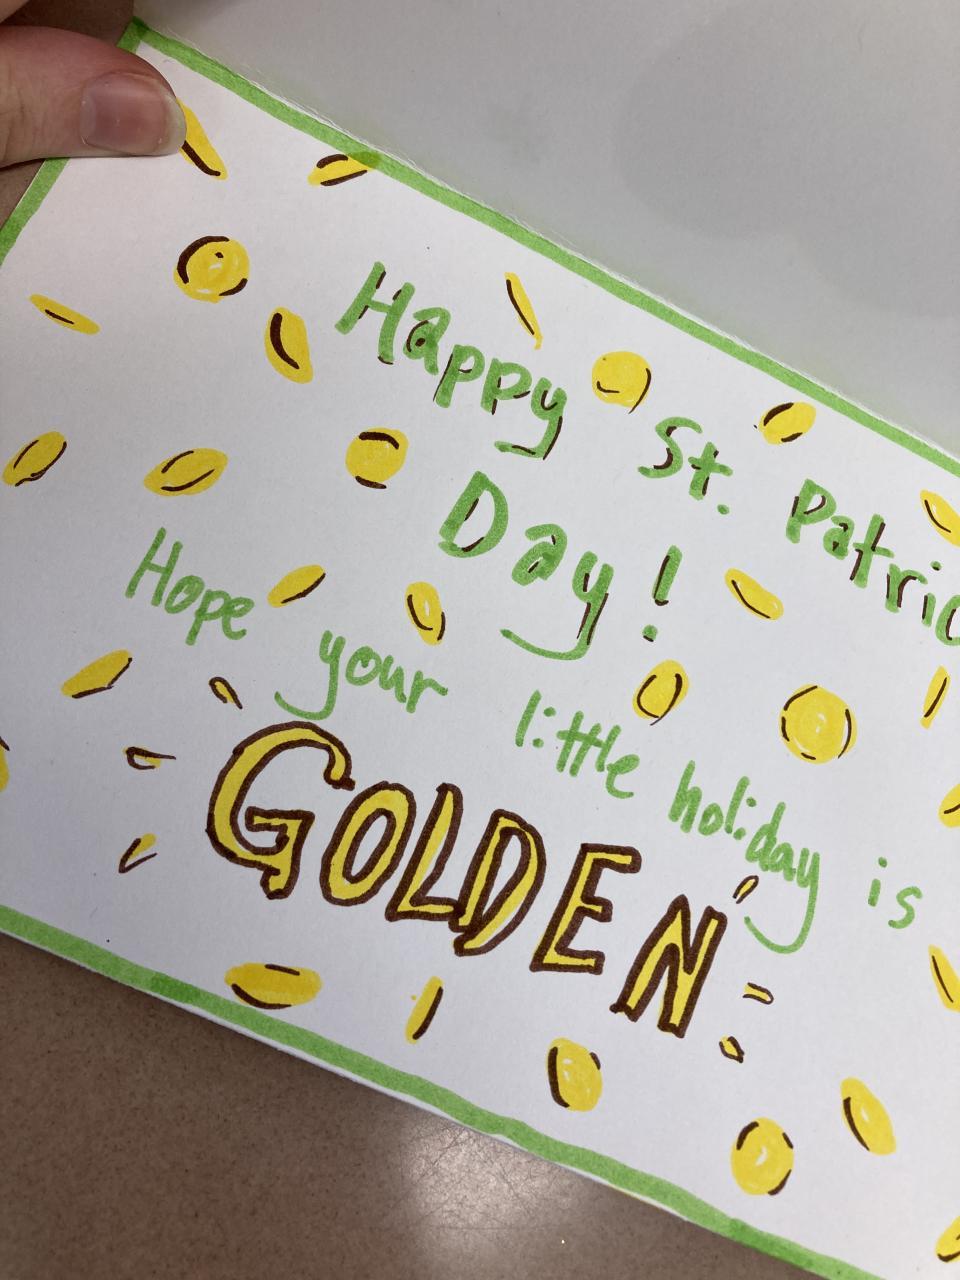 Happy St. Patric
Day!
Hope your little holiday is
GOLDEN